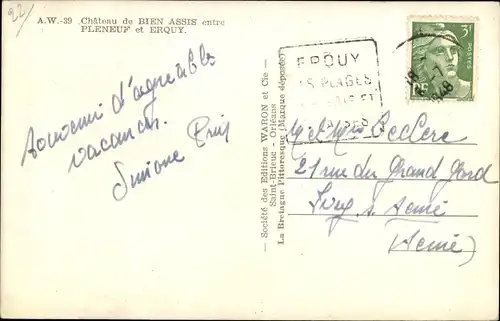 22/
A.W.-39 Château de BIEN ASSIS entre
PLENEUF et ERQUY.
Souvenir d'agréables
vacances.
Simone
— Société des Editions WARON et Cie —
Saint-Brieuc - Orléans
La Bretagne Pittoresque (Marque déposée)
ERQUY
PLAGES
ET
3F
POSTES
RF
18
-7
1948
Leclerc
21 rue du Grand Gord
Ivry s.